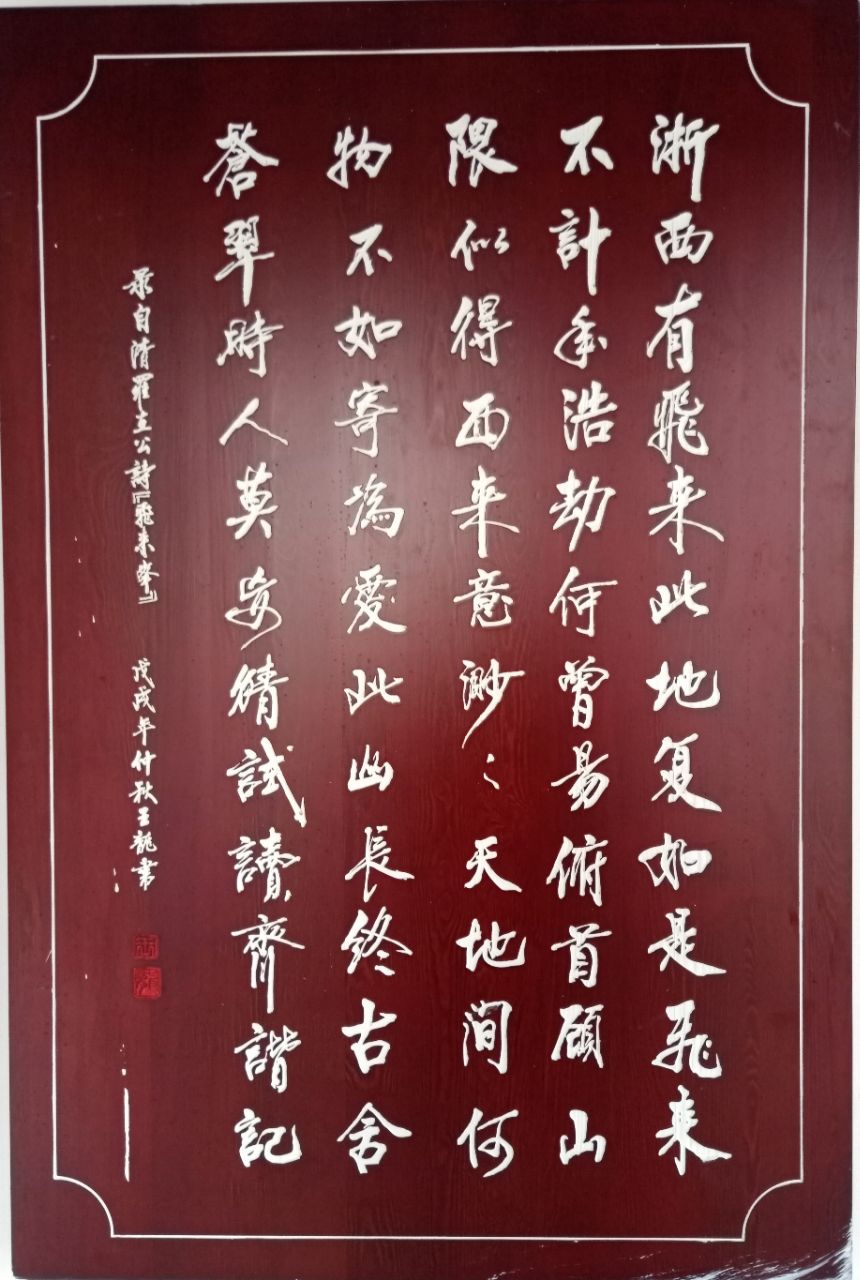 浙西有飛来此地复如是飛来
不計年浩劫何曾易俯首顧山
隈似得西来意渺〻天地間何
物不如寄為愛此幽長終古含
蒼翠時人莫妄猜試讀齊諧記
录自清羅立公詩『飛来峯』 戊戌年仲秋王龍书